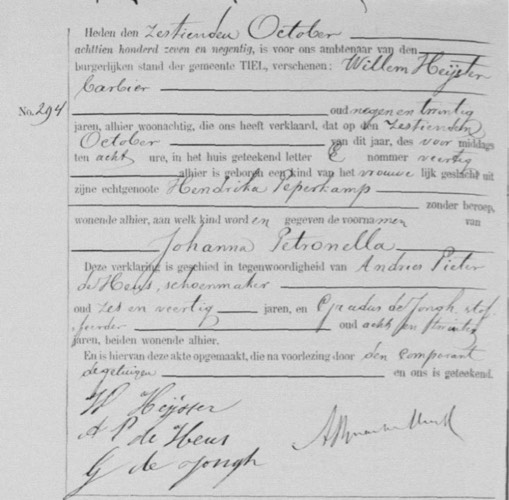 Heden den zestienden October
achttien honderd zeven en negentig, is voor ons ambtenaar van den
burgerlijken stand der gemeente TIEL, verschenen: Willem Heijster
barbier
No. 294
oud negen en twintig
jaren, alhier woonachtig, die ons heeft verklaard, dat op den zestienden
October van dit jaar, des voor middags
ten acht ure, in het huis geteekend letter E nommer veertig
alhier is geboren een kind van het vrouwelijk geslacht uit
zijne echtgenoote Hendrika Peperkamp
zonder beroep,
wonende alhier, aan welk kind worden gegeven de voornamen van
Johanna Petronella
Deze verklaring is geschied in tegenwoordigheid van Andries Pieter
de Heus, schoenmaker
oud zes en veertig jaren, en de Jongh, stof
feerder oud acht en
jaren, beiden wonende alhier.
En is hiervan deze akte opgemaakt, die na voorlezing door den comparant
de getuigen en ons is geteekend.
W Heijster
A P de Heus
G de Jongh